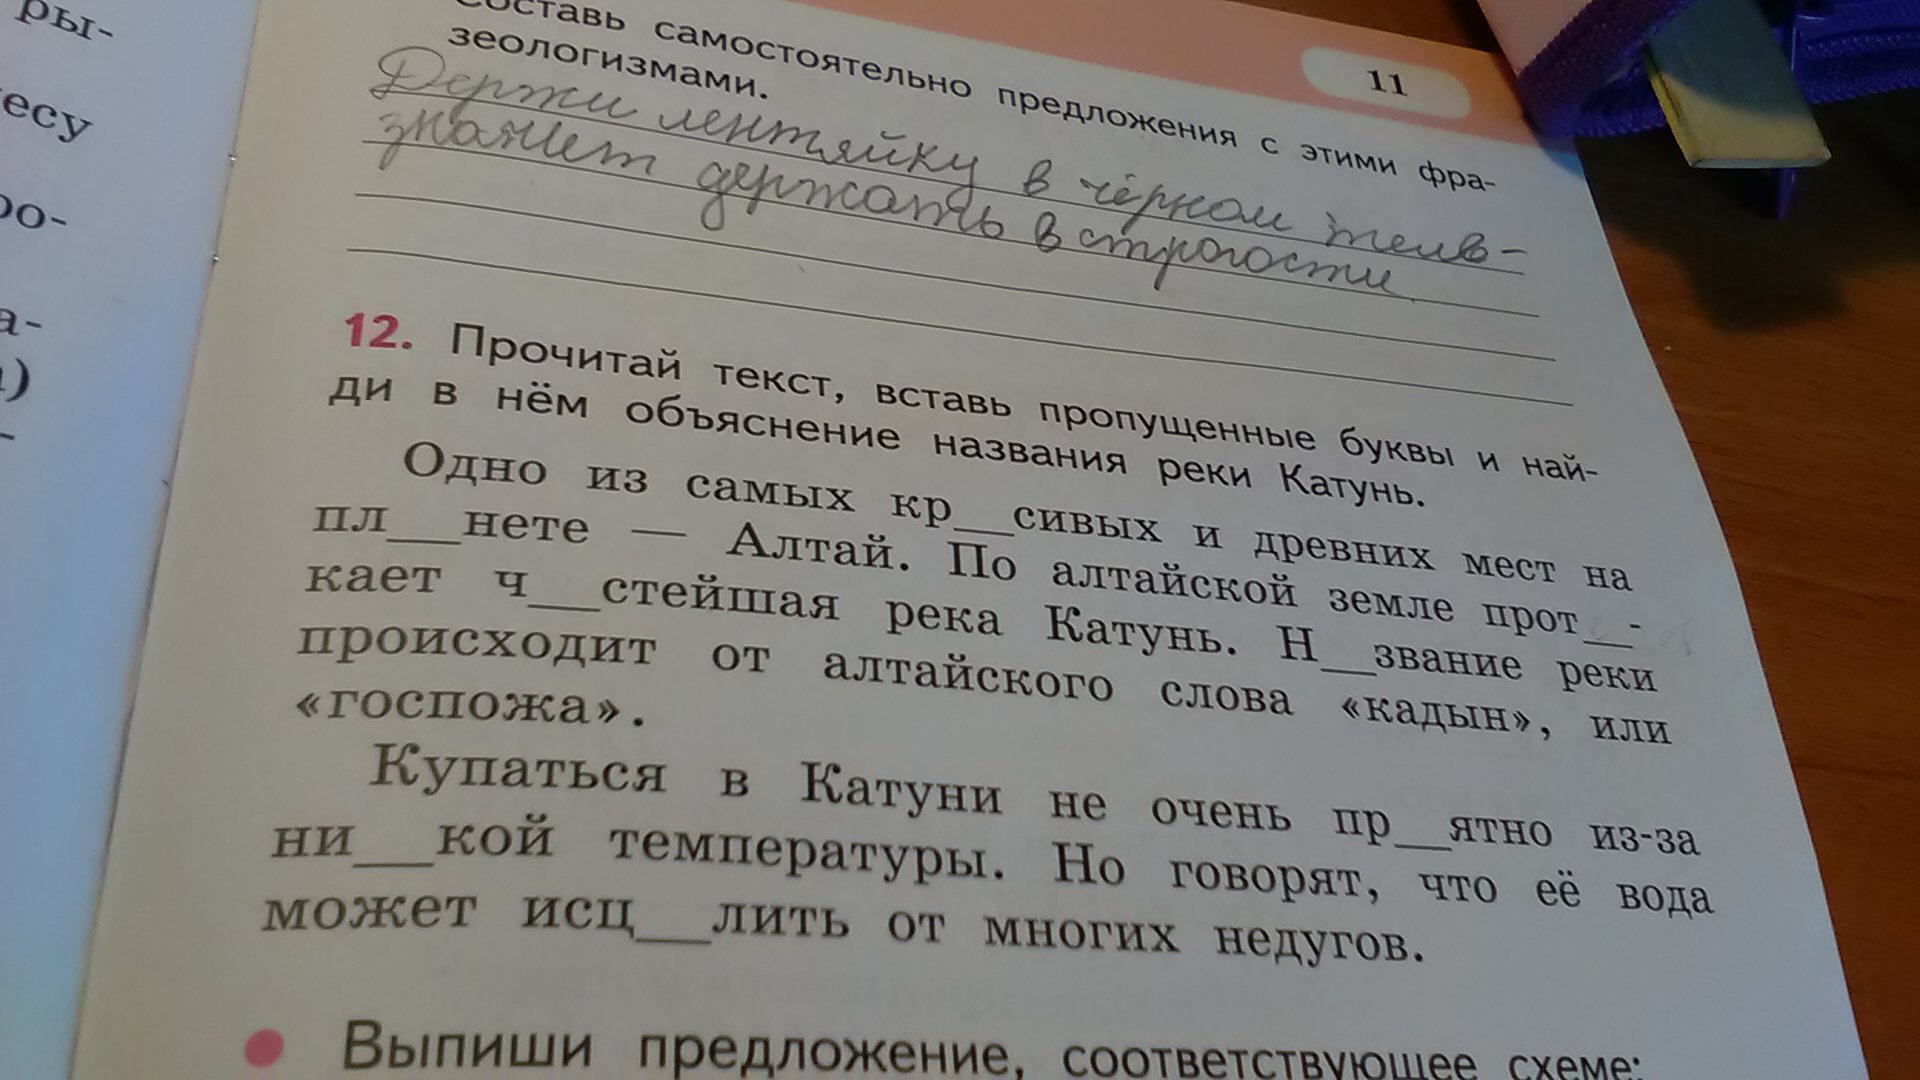 ры-
есу
ро-
а-
)
-
Составь самостоятельно предложения с этими фра-
11
зеологизмами.
Держи лентяйку в чёрном теле-
значет держать в строгости
12. Прочитай текст, вставь пропущенные буквы и най-
ди в нём объяснение названия реки Катунь.
Одно из самых кр__сивых и древних мест на
пл__нете — Алтай. По алтайской земле прот__-
кает ч__стейшая река Катунь. Н__звание реки
происходит от алтайского слова «кадын», или
«госпожа».
Купаться в Катуни не очень пр__ятно из-за
ни__кой температуры. Но говорят, что её вода
может исц__лить от многих недугов.
Выпиши предложение, соответствующее схеме: